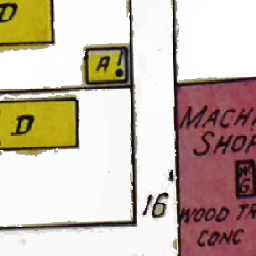 D
A!
D
MACH
SHOP
W
G
16'
WOOD TR
CONC